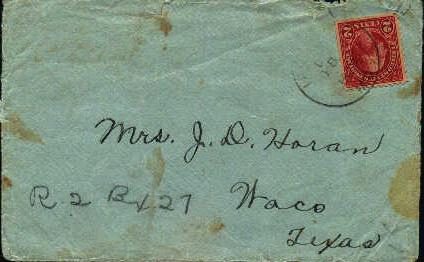 Mrs. J. D. Horan
R 2 Bx 27
Waco
Texas
2 2